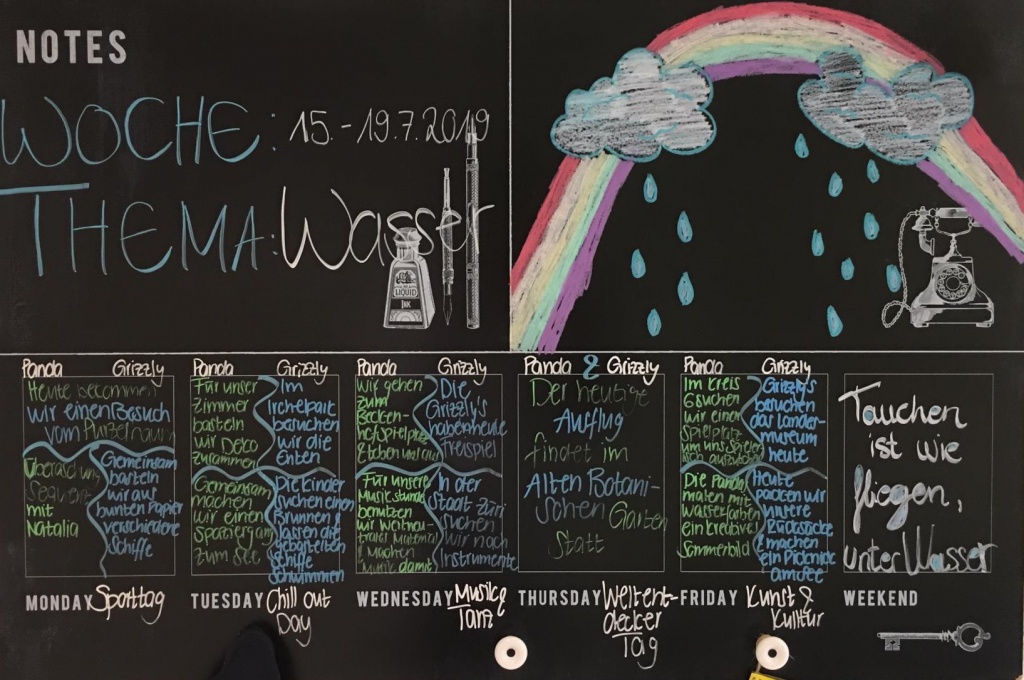 NOTES
WOCHE: 15.-19.7.2019
THEMA: Wasser
LIQUID
INK
Panda Grizzly
Heute bekommen
wir einen Besuch
vom Purzelbaum
mit
Natalia
Gemeinsam
basteln
wir aus
bunten Papier
verschiedene
Schiffe
MONDAY Sporttag
Panda Grizzly
Für unser
Zimmer
basteln
wir Deko
zusammen
Im
Irchelpark
besuchen
wir die
Enten
Gemeinsam
machen
wir einen
Spaziergang
zum See
Die Kinder
suchen einen
Brunnen &
lassen die
gebastelten
Schiffe
schwimmen
TUESDAY Chill out
Day
Panda Grizzly
Wir gehen
zum
Becken-
hof Spielplatz
Die
Grizzly's
haben heute
Freispiel
Für unsere
Musikstunde
benutzen
Material
& machen
Musik damit
In der
Stadt Züri
suchen
wir nach
Instrumente
WEDNESDAY Musik &
Tanz
Panda & Grizzly
Der heutige
Auflug
findet im
Alten Botani-
schen Garten
Statt
THURSDAY Weltent-
decker
Tag
Panda Grizzly
Im Kreis
6 suchen
wir einen
Spielplatz
um uns
Grizzly's
besuchen
das Landes-
museum
heute
Die Panda
malen mit
Wasserfarben
ein kreatives
Sommerbild
Heute
packen wir
unsere
Rücksäcke
& machen
ein Picknick
am See
FRIDAY Kunst &
Kultur
Tauchen
ist wie
fliegen,
unter Wasser
WEEKEND